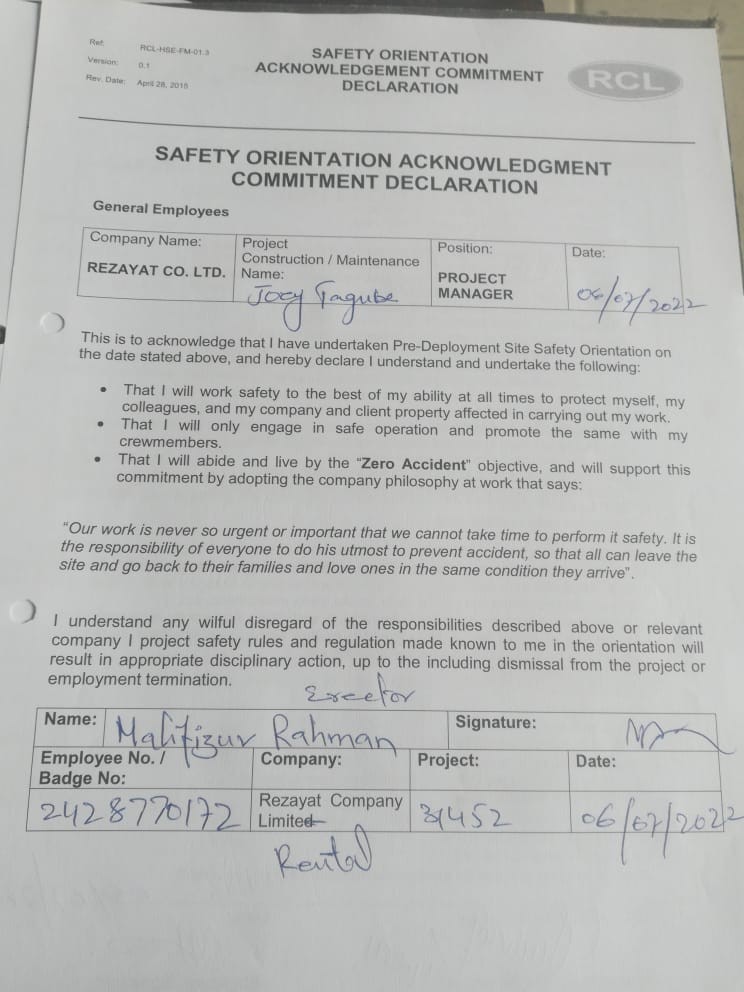 Ref: RCL-HSE-FM-01.3
Version: 0.1
Rev. Date: April 28, 2015
SAFETY ORIENTATION
ACKNOWLEDGEMENT COMMITMENT
DECLARATION
RCL
SAFETY ORIENTATION ACKNOWLEDGMENT
COMMITMENT DECLARATION
General Employees
Company Name:
REZAYAT CO. LTD.
Project
Construction / Maintenance
Name:
Joey Tagube
Position:
PROJECT
MANAGER
Date:
06/07/2022
This is to acknowledge that I have undertaken Pre-Deployment Site Safety Orientation on
the date stated above, and hereby declare I understand and undertake the following:
• That I will work safety to the best of my ability at all times to protect myself, my
colleagues, and my company and client property affected in carrying out my work.
• That I will only engage in safe operation and promote the same with my
crewmembers.
• That I will abide and live by the “Zero Accident” objective, and will support this
commitment by adopting the company philosophy at work that says:
“Our work is never so urgent or important that we cannot take time to perform it safety. It is
the responsibility of everyone to do his utmost to prevent accident, so that all can leave the
site and go back to their families and love ones in the same condition they arrive”.
I understand any wilful disregard of the responsibilities described above or relevant
company I project safety rules and regulation made known to me in the orientation will
result in appropriate disciplinary action, up to the including dismissal from the project or
employment termination.
Erector
Name: Mahfizur Rahman
Signature:
Employee No. /
Badge No:
2428770172
Company:
Rezayat Company
Limited
Rental
Project:
31452
Date:
06/07/2022